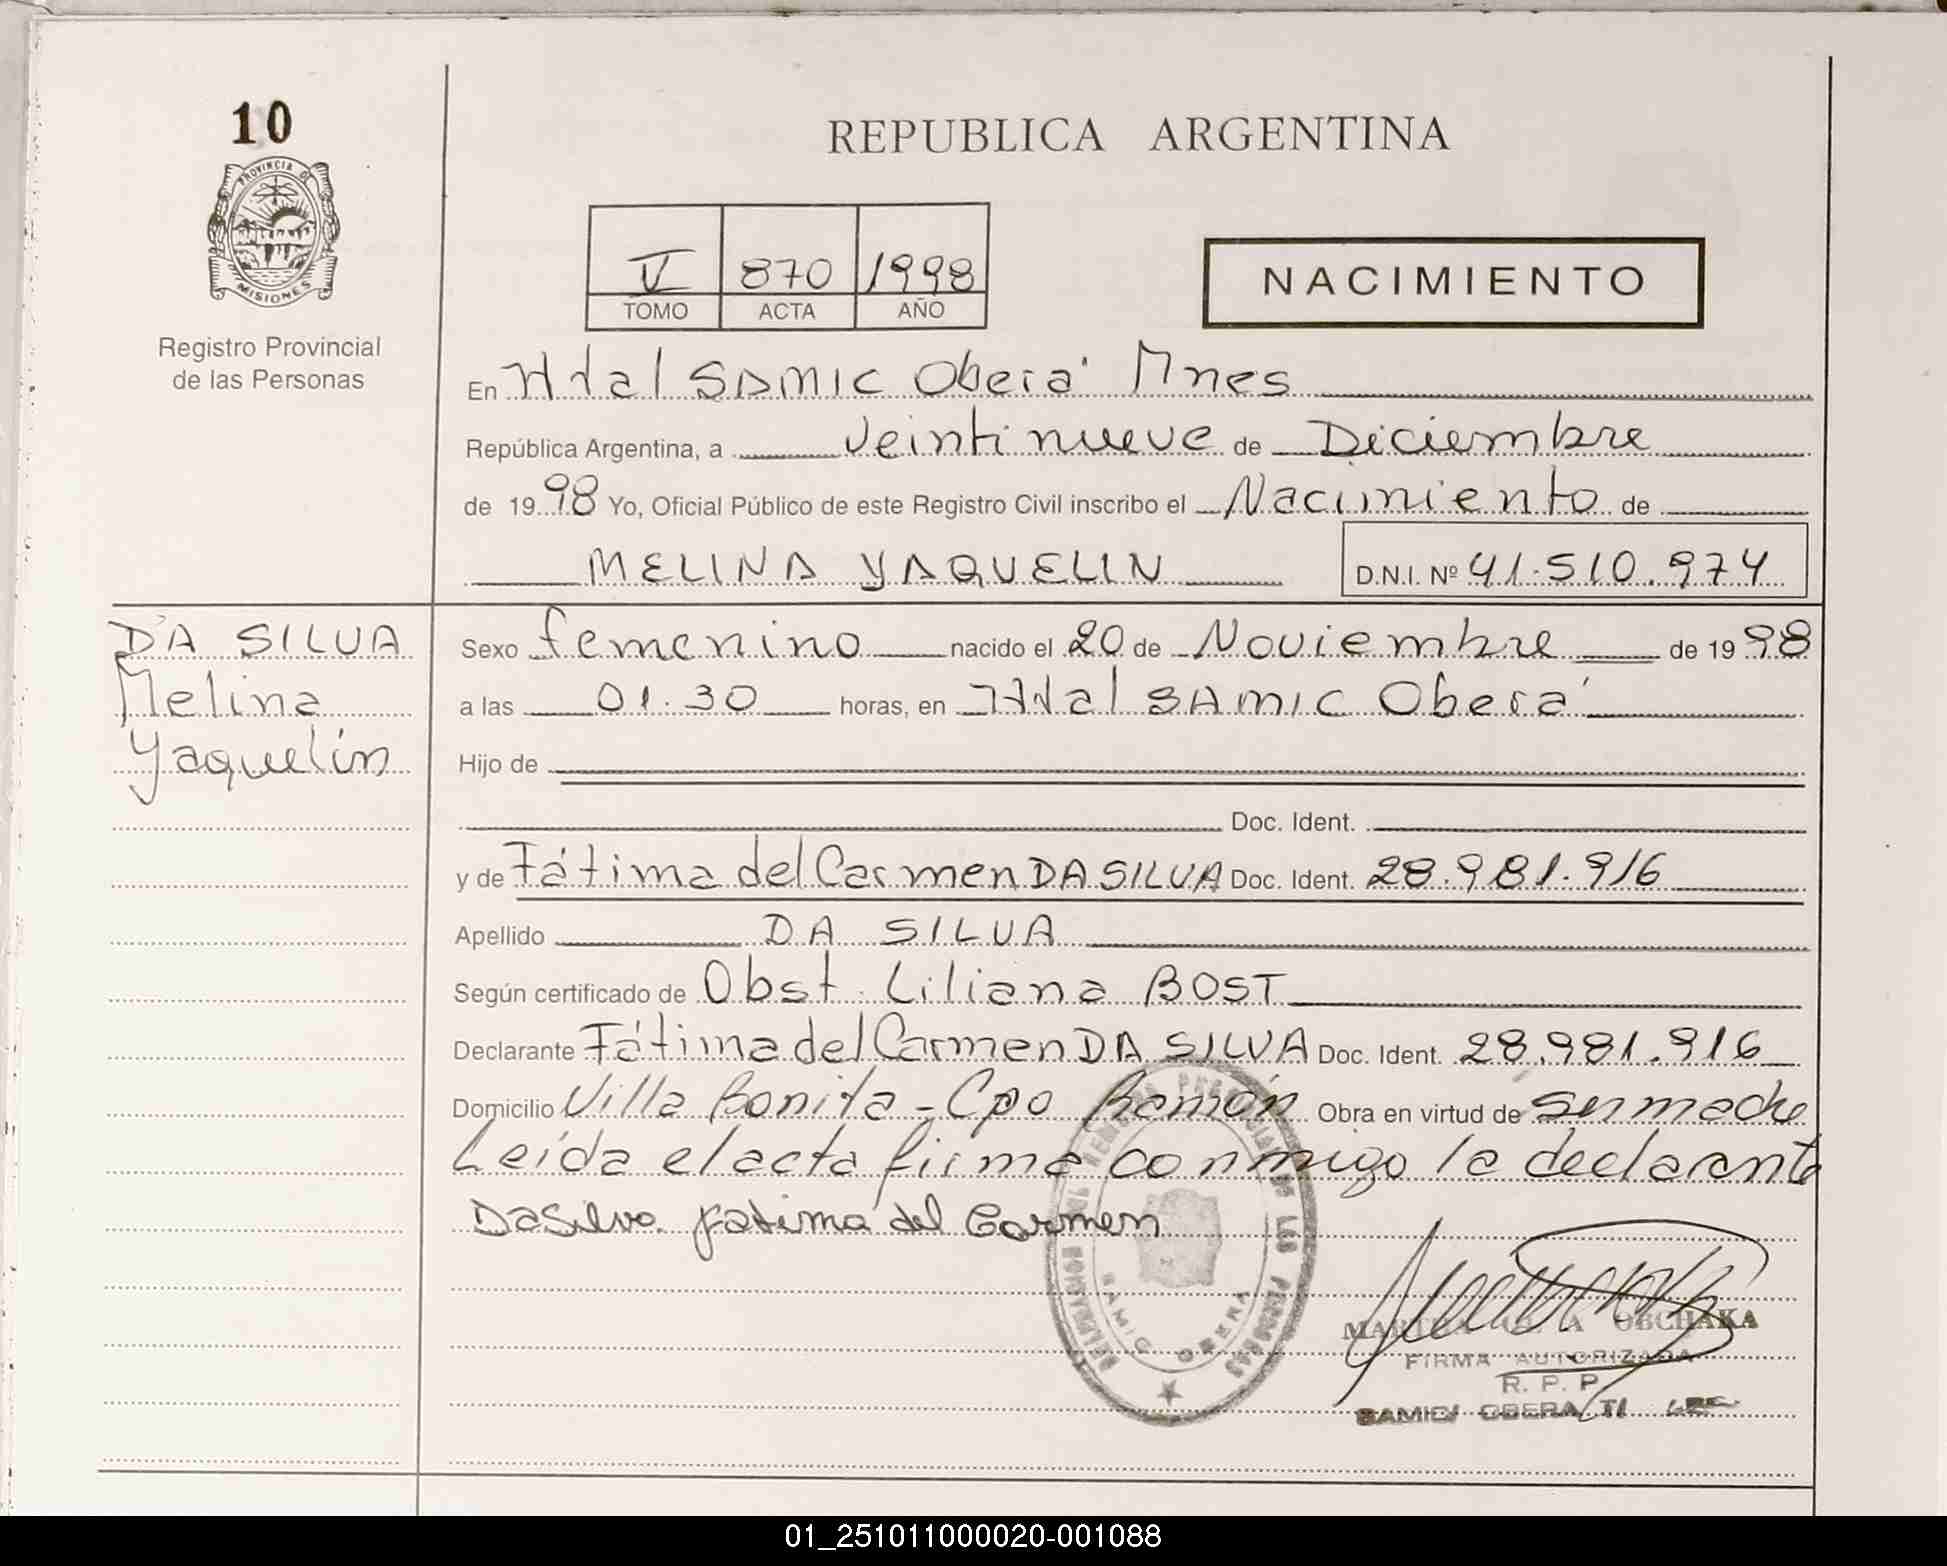 10
PROVINCIA DE
MISIONES
Registro Provincial
de las Personas
REPUBLICA ARGENTINA
V 870 1998
TOMO ACTA AÑO
NACIMIENTO
En Htal SAMIC Oberá Mnes
República Argentina, a veintinueve de Diciembre
de 1998 Yo, Oficial Público de este Registro Civil inscribo el Nacimiento de
MELINA YAQUELIN D.N.I. Nº 41.510.974
DA SILVA
Melina
Yaquelin
Sexo femenino nacido el 20 de Noviembre de 1998
a las 01.30 horas, en Htal SAMIC Oberá
Hijo de
Doc. Ident.
y de Fátima del Carmen DA SILVA Doc. Ident. 28.981.916
Apellido DA SILVA
Según certificado de Obst. Liliana BOST
Declarante Fátima del Carmen DA SILVA Doc. Ident. 28.981.916
Domicilio Villa Bonita - Cpo Ramón Obra en virtud de ser madre
Leída el acta firma conmigo la declarante
DaSilva fatima del Carmen
DE LAS PERSONAS
SAMIC OBERA
OBCHAKA
FIRMA AUTORIZADA
R. P. P
SAMIC OBERA
01_251011000020-001088